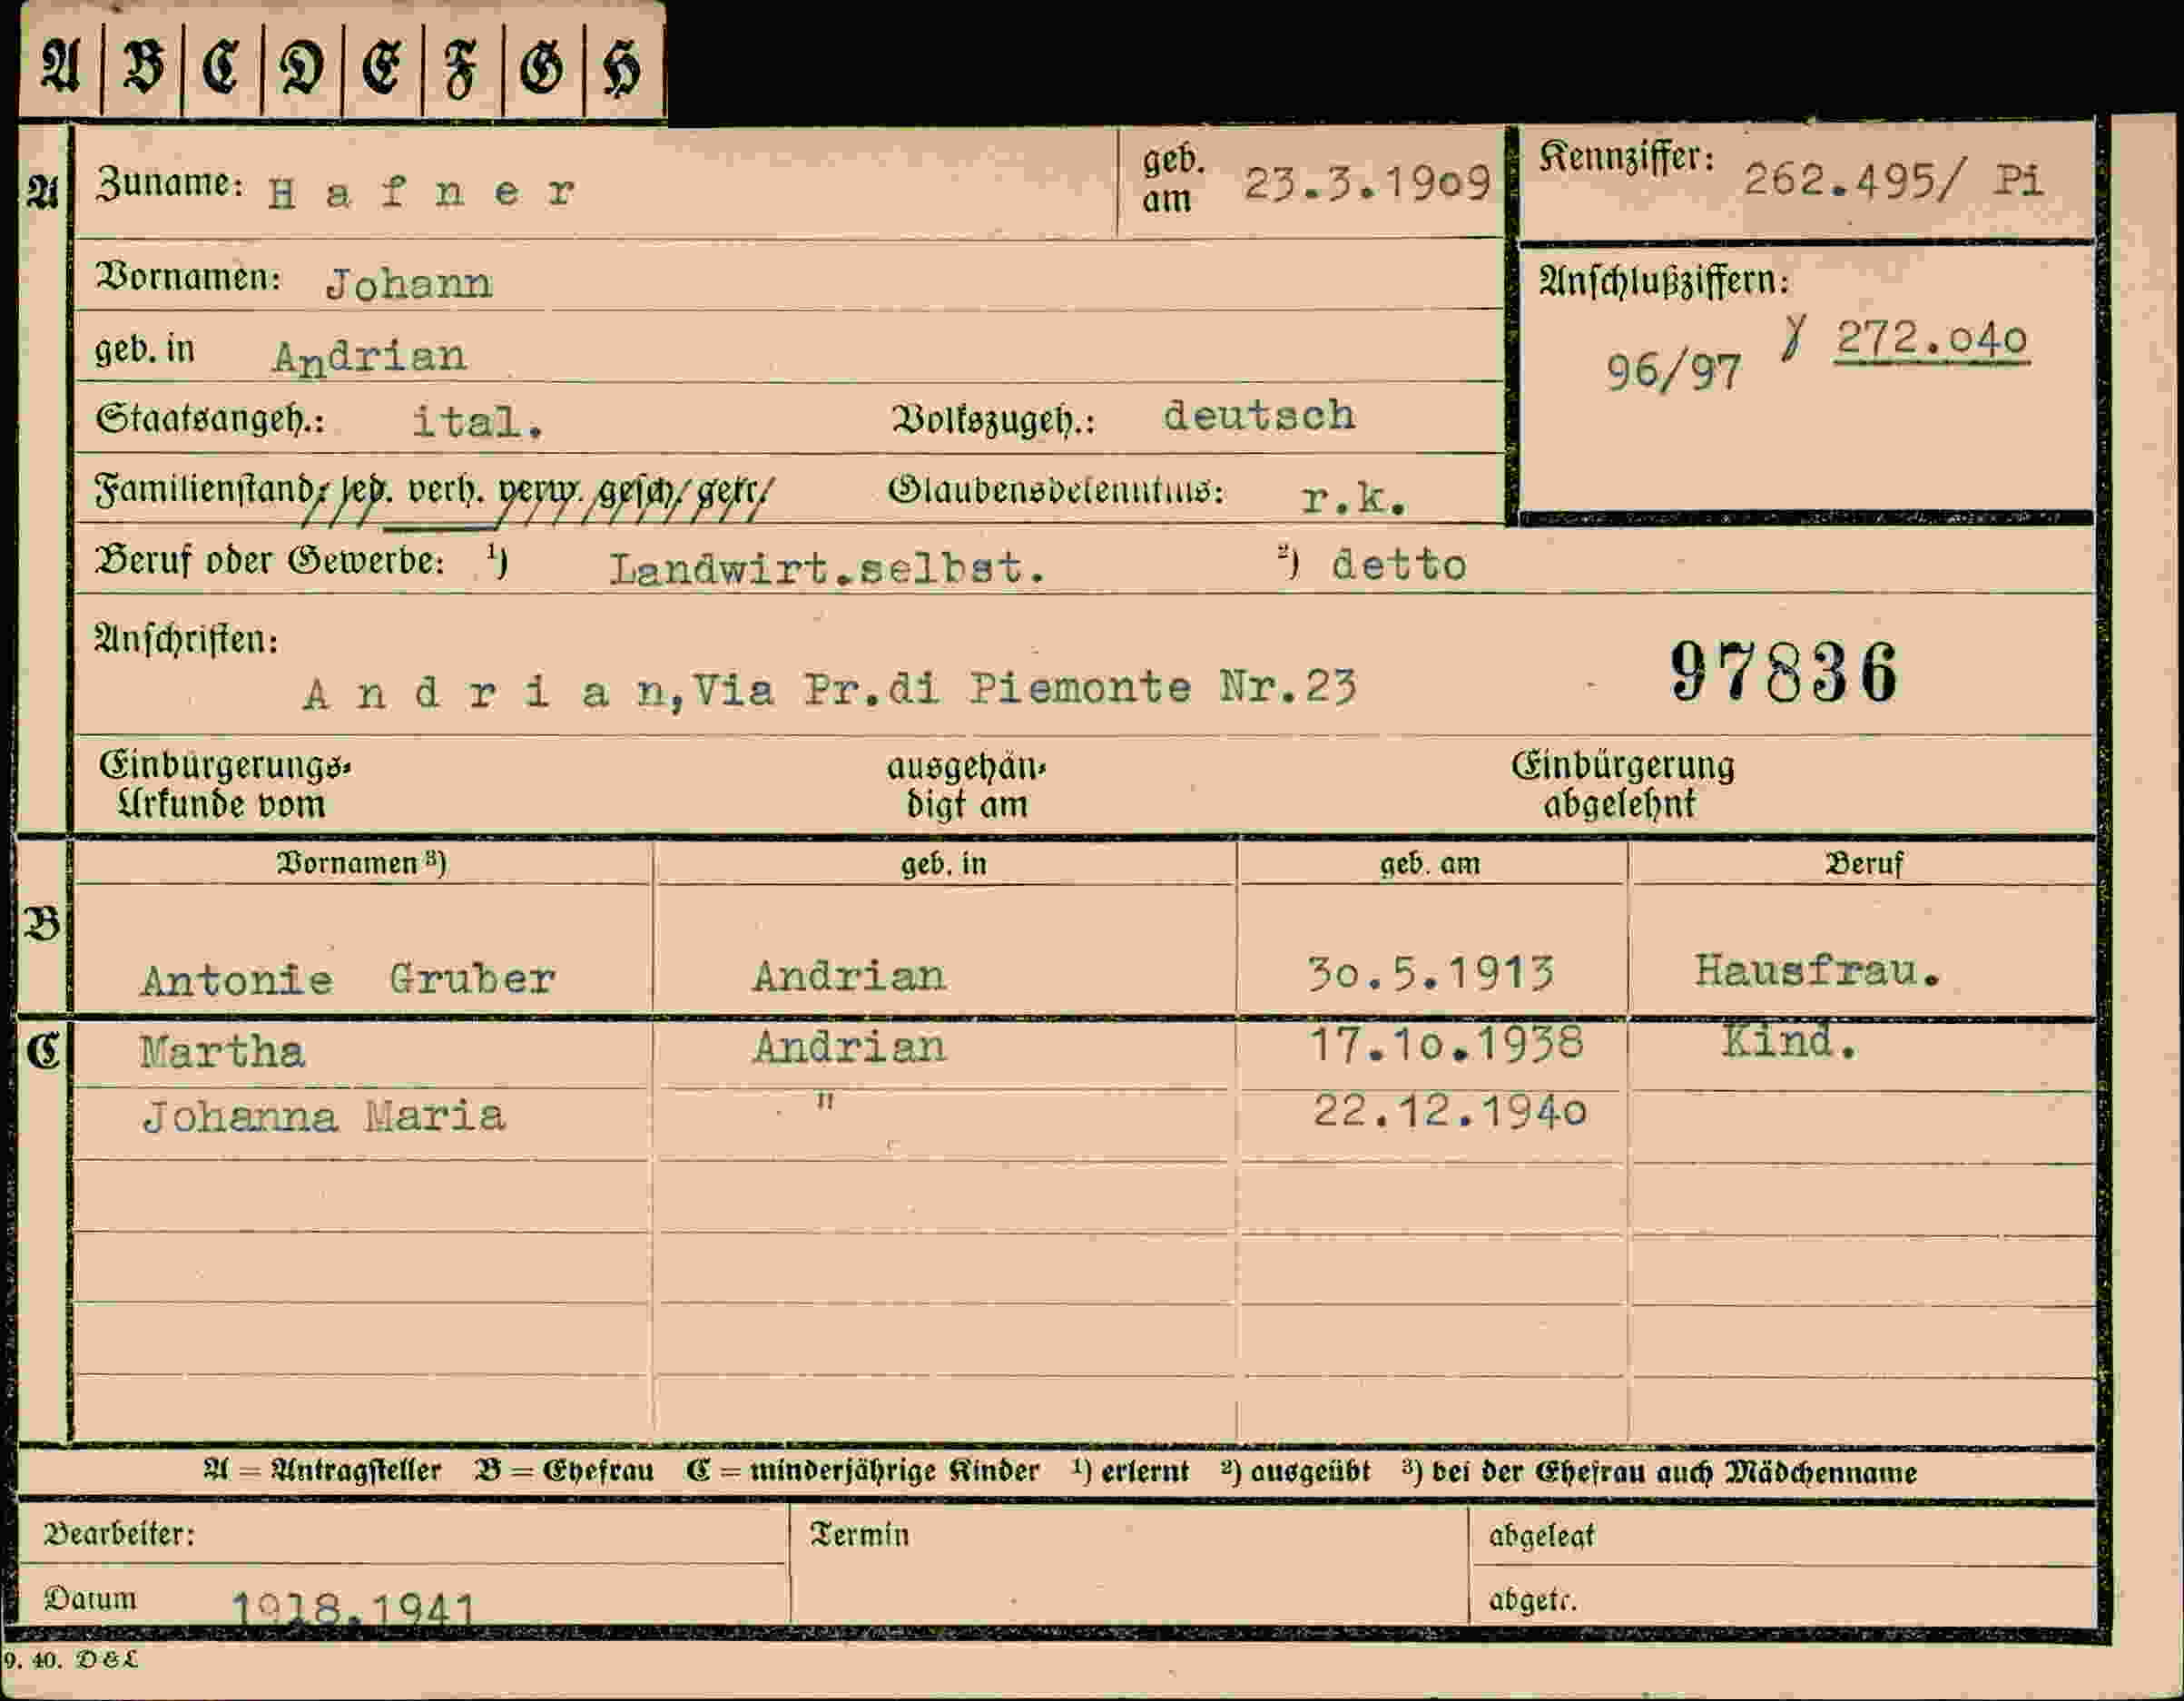 A B C D E F G H
A Zuname: H a f n e r geb. am 23.3.1909 Kennziffer: 262.495/ Pi
Vornamen: Johann
Anschlußziffern:
96/97 γ 272.040
geb. in Andrian
Staatsangeh.: ital. Volkszugeh.: deutsch
Familienstand: led. verh. verw. gesch. getr. Glaubensbekenntnis: r.k.
Beruf oder Gewerbe: ¹) Landwirt.selbst. ²) detto
Anschriften:
A n d r i a n,Via Pr.di Piemonte Nr.23 97836
Einbürgerungs-
Urkunde vom
ausgehän-
digt am
Einbürgerung
abgelehnt
Vornamen ³) geb. in geb. am Beruf
B
Antonie Gruber Andrian 30.5.1913 Hausfrau.
C Martha Andrian 17.10.1938 Kind.
Johanna Maria " 22.12.1940
A = Antragsteller B = Ehefrau C = minderjährige Kinder ¹) erlernt ²) ausgeübt ³) bei der Ehefrau auch Mädchenname
Bearbeiter: Termin abgelegt
Datum abgetr.
9. 40. D&L